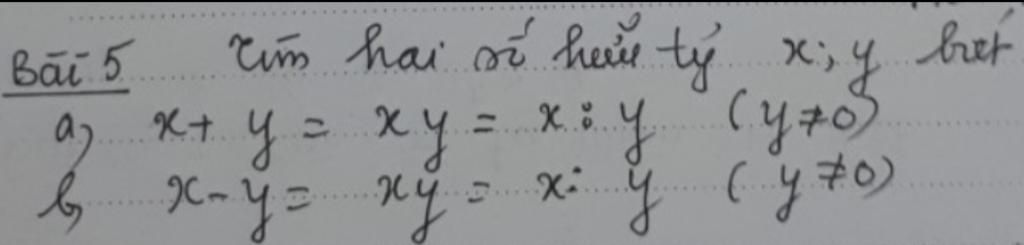 Bài 5 Tìm hai số hữu tỷ x; y biết
a) x + y = xy = x : y (y ≠ 0)
b) x - y = xy = x : y (y ≠ 0)